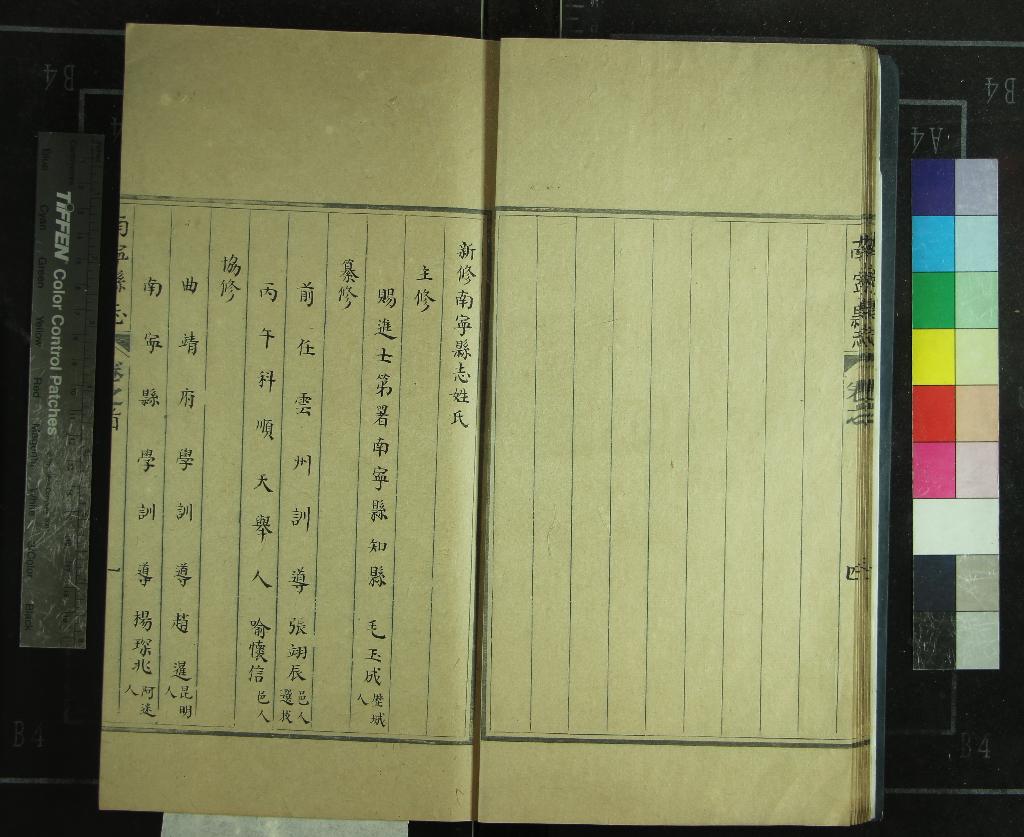 新修南寧縣志姓氏
主修
賜進士第署南寧縣知縣毛玉成
人
纂修
前任雲州訓導張翊辰邑人
選拔
丙午科順天舉人喻懷信邑人
協修
曲靖府學訓導趙暹昆明
人
南寧縣學訓導楊琛兆阿迷
人
南寧縣志
卷之首
一
TIFFEN Color Control Patches
Blue
Cyan
Green
Yellow
Red
Magenta
White
3/Color
Black
B4
A4
B4
B4
B4